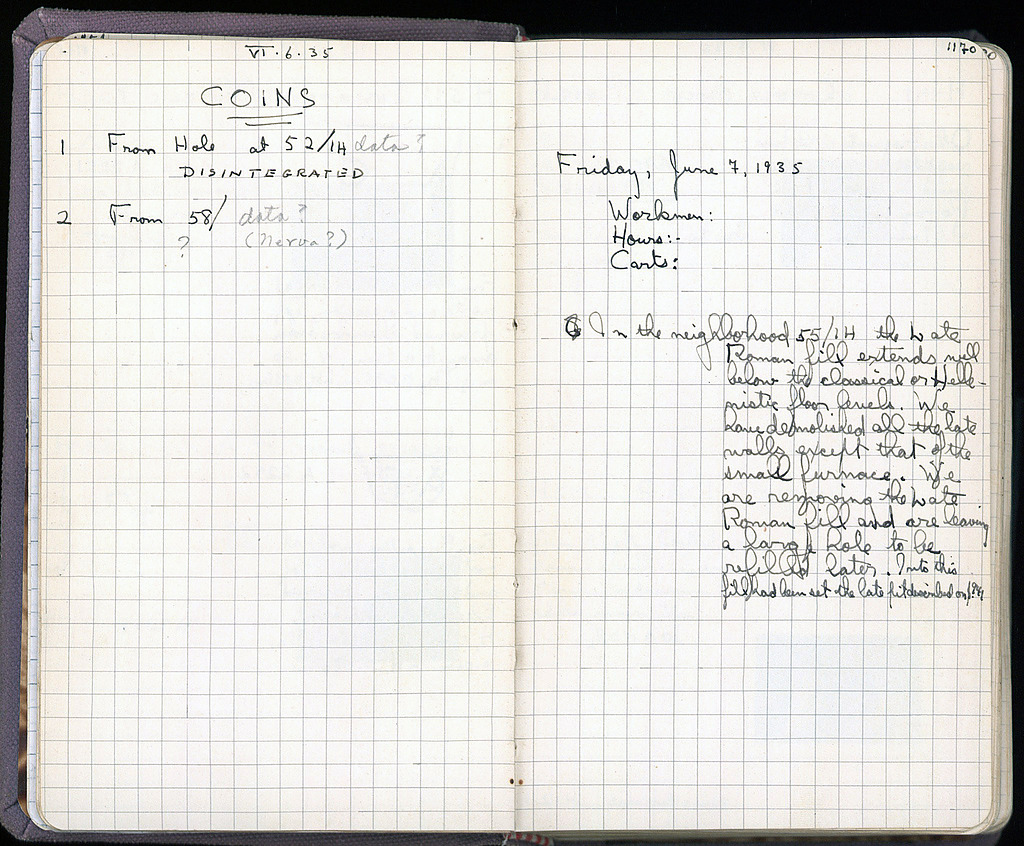 VI·6·35
COINS
1 From Hole at 52/ΙΗ data?
DISINTEGRATED
2 From 58/ data?
? (Nerva?)
1170
Friday, June 7, 1935
Workmen:
Hours:-
Carts:
In the neighborhood 55/ΙΗ the Late
Roman fill extends well
below the classical or Helle-
nistic floor levels. We
have demolished all the late
walls except that of the
small furnace. We
are removing the Late
Roman fill and are leaving
a large hole to be
refilled later. Into this
fill had been set the late pit described on p.